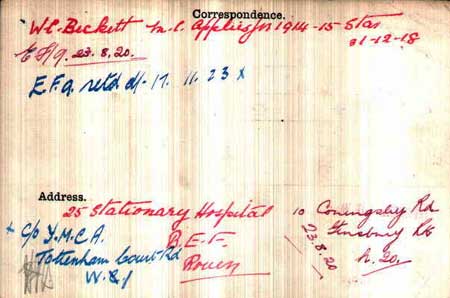 Correspondence.
W.C. Beckett M.C. Applies for 1914-15 Star
31-12-18
E.F.9. 23.8.20.
E.F.9. retd d/- 17. 11. 23 x
Address.
25 Stationary Hospital
B.E.F.
Rouen
+ c/o Y.M.C.A.
Tottenham Court Rd
W.
10 Coningsby Rd
Finsbury Pk
23.8.20
A. 20.